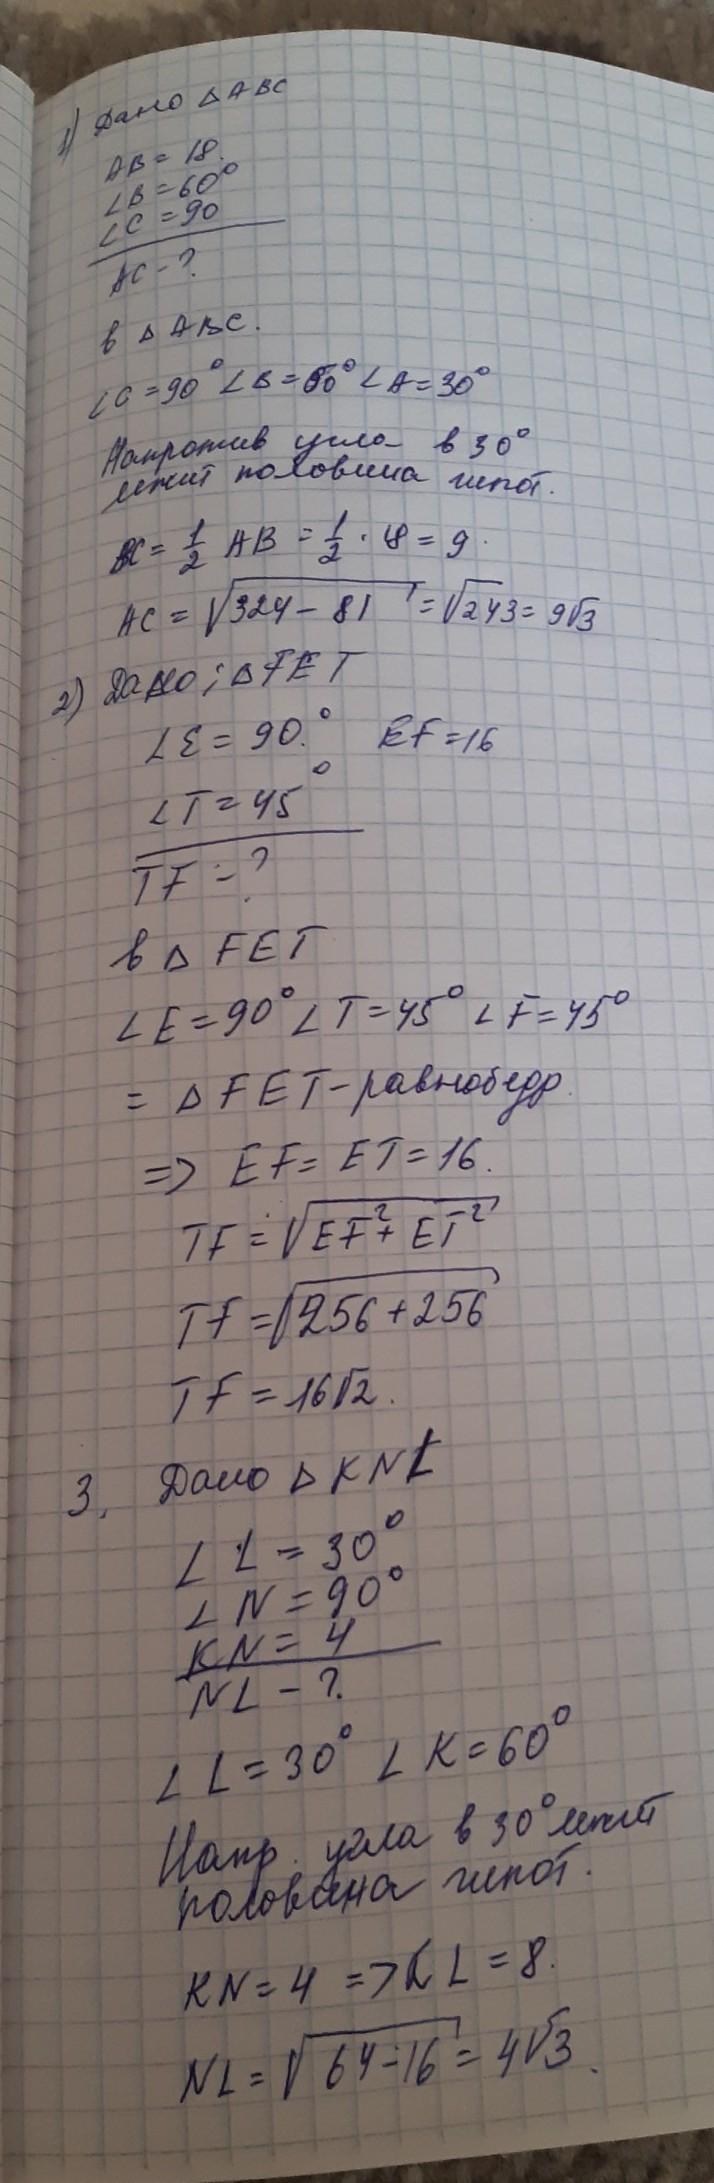 1) Дано △ABC
AB = 18.
∠B = 60°
∠C = 90
AC - ?
в △ABC.
∠C = 90° ∠B = 60° ∠A = 30°
Напротив угла в 30°
лежит половина гипот.
BC = 1/2 AB = 1/2 · 18 = 9.
AC = √(324 - 81) = √243 = 9√3
2) Дано: △FET
∠E = 90.° EF = 16
∠T = 45°
TF - ?
в △FET
∠E = 90° ∠T = 45° ∠F = 45°
= △FET - равнобедр.
=> EF = ET = 16.
TF = √(EF² + ET²)
TF = √(256 + 256)
TF = 16√2.
3. Дано △KNL
∠L = 30°
∠N = 90°
KN = 4
NL - ?
∠L = 30° ∠K = 60°
Напр. угла в 30° лежит
половина гипот.
KN = 4 => KL = 8.
NL = √(64 - 16) = 4√3.